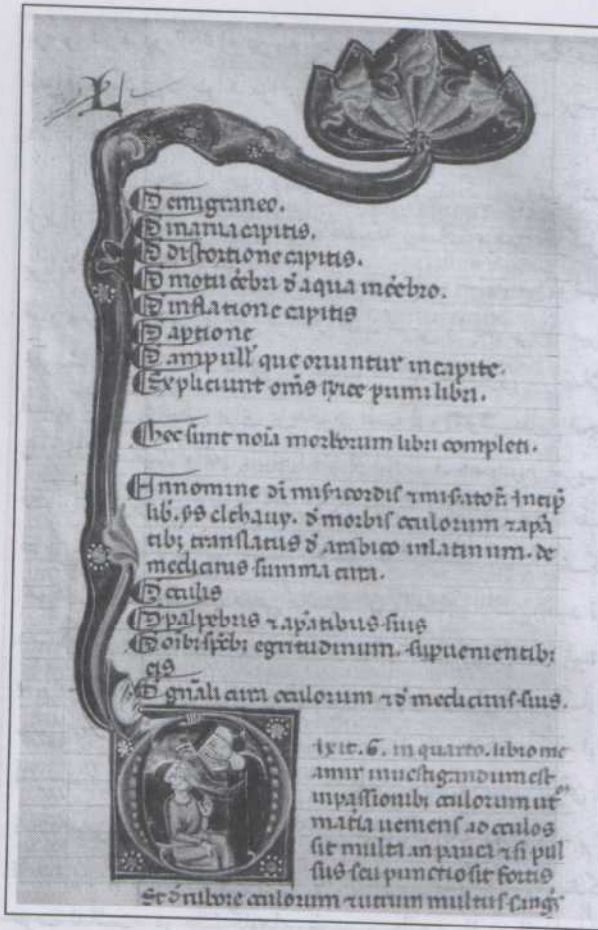 L
D emigraneo.
D mania capitis.
D distortione capitis.
D motu c̄ebri ⁊ d̄ aqua in c̄ebro.
D inflatione capitis
D aptione
D ampull' que oriuntur in capite.
Expliciunt om̄s primi libri.
Hec sunt noīa morborum libri completi.
In nomine dī mīsicordis ⁊ mīsatoR̄. Incip̄
lib. d̄ morbis oculorum ⁊ apā
tibꝫ translatus d̄ arabico in latinum. de
medicinis summa cura.
D oculis
D palpebris ⁊ ap̄atibus suis
D oībꝫ sp̄ēbꝫ egritudinum. supuenientibꝫ
eis
D gn̄ali cura oculorum ⁊ d̄ medicinis suis.
ixit. G. in quarto. libro me
amir inuestigandum est
in passionibꝫ oculorum ut̄
mat̄ia ueniens ad oculos
sit multa an pauca ⁊ si pul
sus seu punctio sit fortis
Et d̄ rubore oculorum ⁊ utrum multus sangꝫ